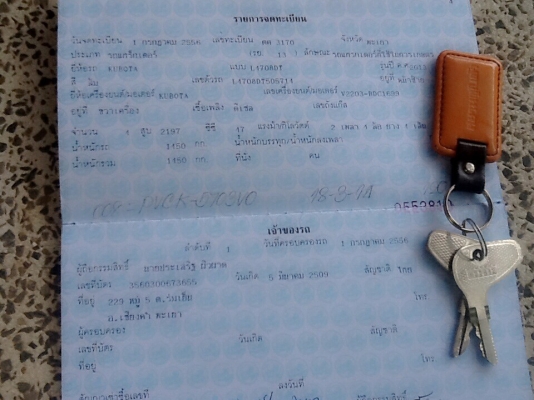 รายการจดทะเบียน
วันจดทะเบียน 1 กรกฎาคม 2556 เลขทะเบียน ตค 2170 จังหวัด พะเยา
ประเภท รถแทรกเตอร์ (รย. 13 ) ลักษณะ
ยี่ห้อรถ KUBOTA แบบ L4708DT รุ่นปี ค.ศ.
สี ส้ม เลขตัวรถ อยู่ที่
ยี่ห้อเครื่องยนต์/มอเตอร์ KUBOTA เลขเครื่องยนต์/มอเตอร์
อยู่ที่ ขวาเครื่อง เชื้อเพลิง ดีเซล เลขถังแก๊ส
จำนวน 4 สูบ 2197 ซีซี 47 แรงม้า/กิโลวัตต์ 2 เพลา 4 ล้อ ยาง 4 เส้น
น้ำหนักรถ 1450 กก. น้ำหนักบรรทุก/น้ำหนักลงเพลา
น้ำหนักรวม 1450 กก. ที่นั่ง คน
เจ้าของรถ
ลำดับที่ 1 วันที่ครอบครองรถ 1 กรกฎาคม 2556
ผู้ถือกรรมสิทธิ์ นายประเสริฐ
เลขที่บัตร 3560300673655 วันเกิด 5 มีนาคม 2509 สัญชาติ ไทย
ที่อยู่ 229 หมู่ 5 โทร
อ.เชียงคำ พะเยา
ผู้ครอบครอง
เลขที่บัตร วันเกิด สัญชาติ
ที่อยู่ โทร
สัญญาเช่าซื้อเลขที่ ลงวันที่